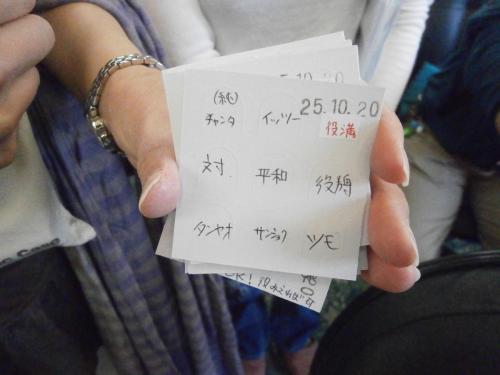 25.10.20
(純)
チャンタ イッツー 役満
対. 平和 役牌
タンヤオ サンショク ツモ